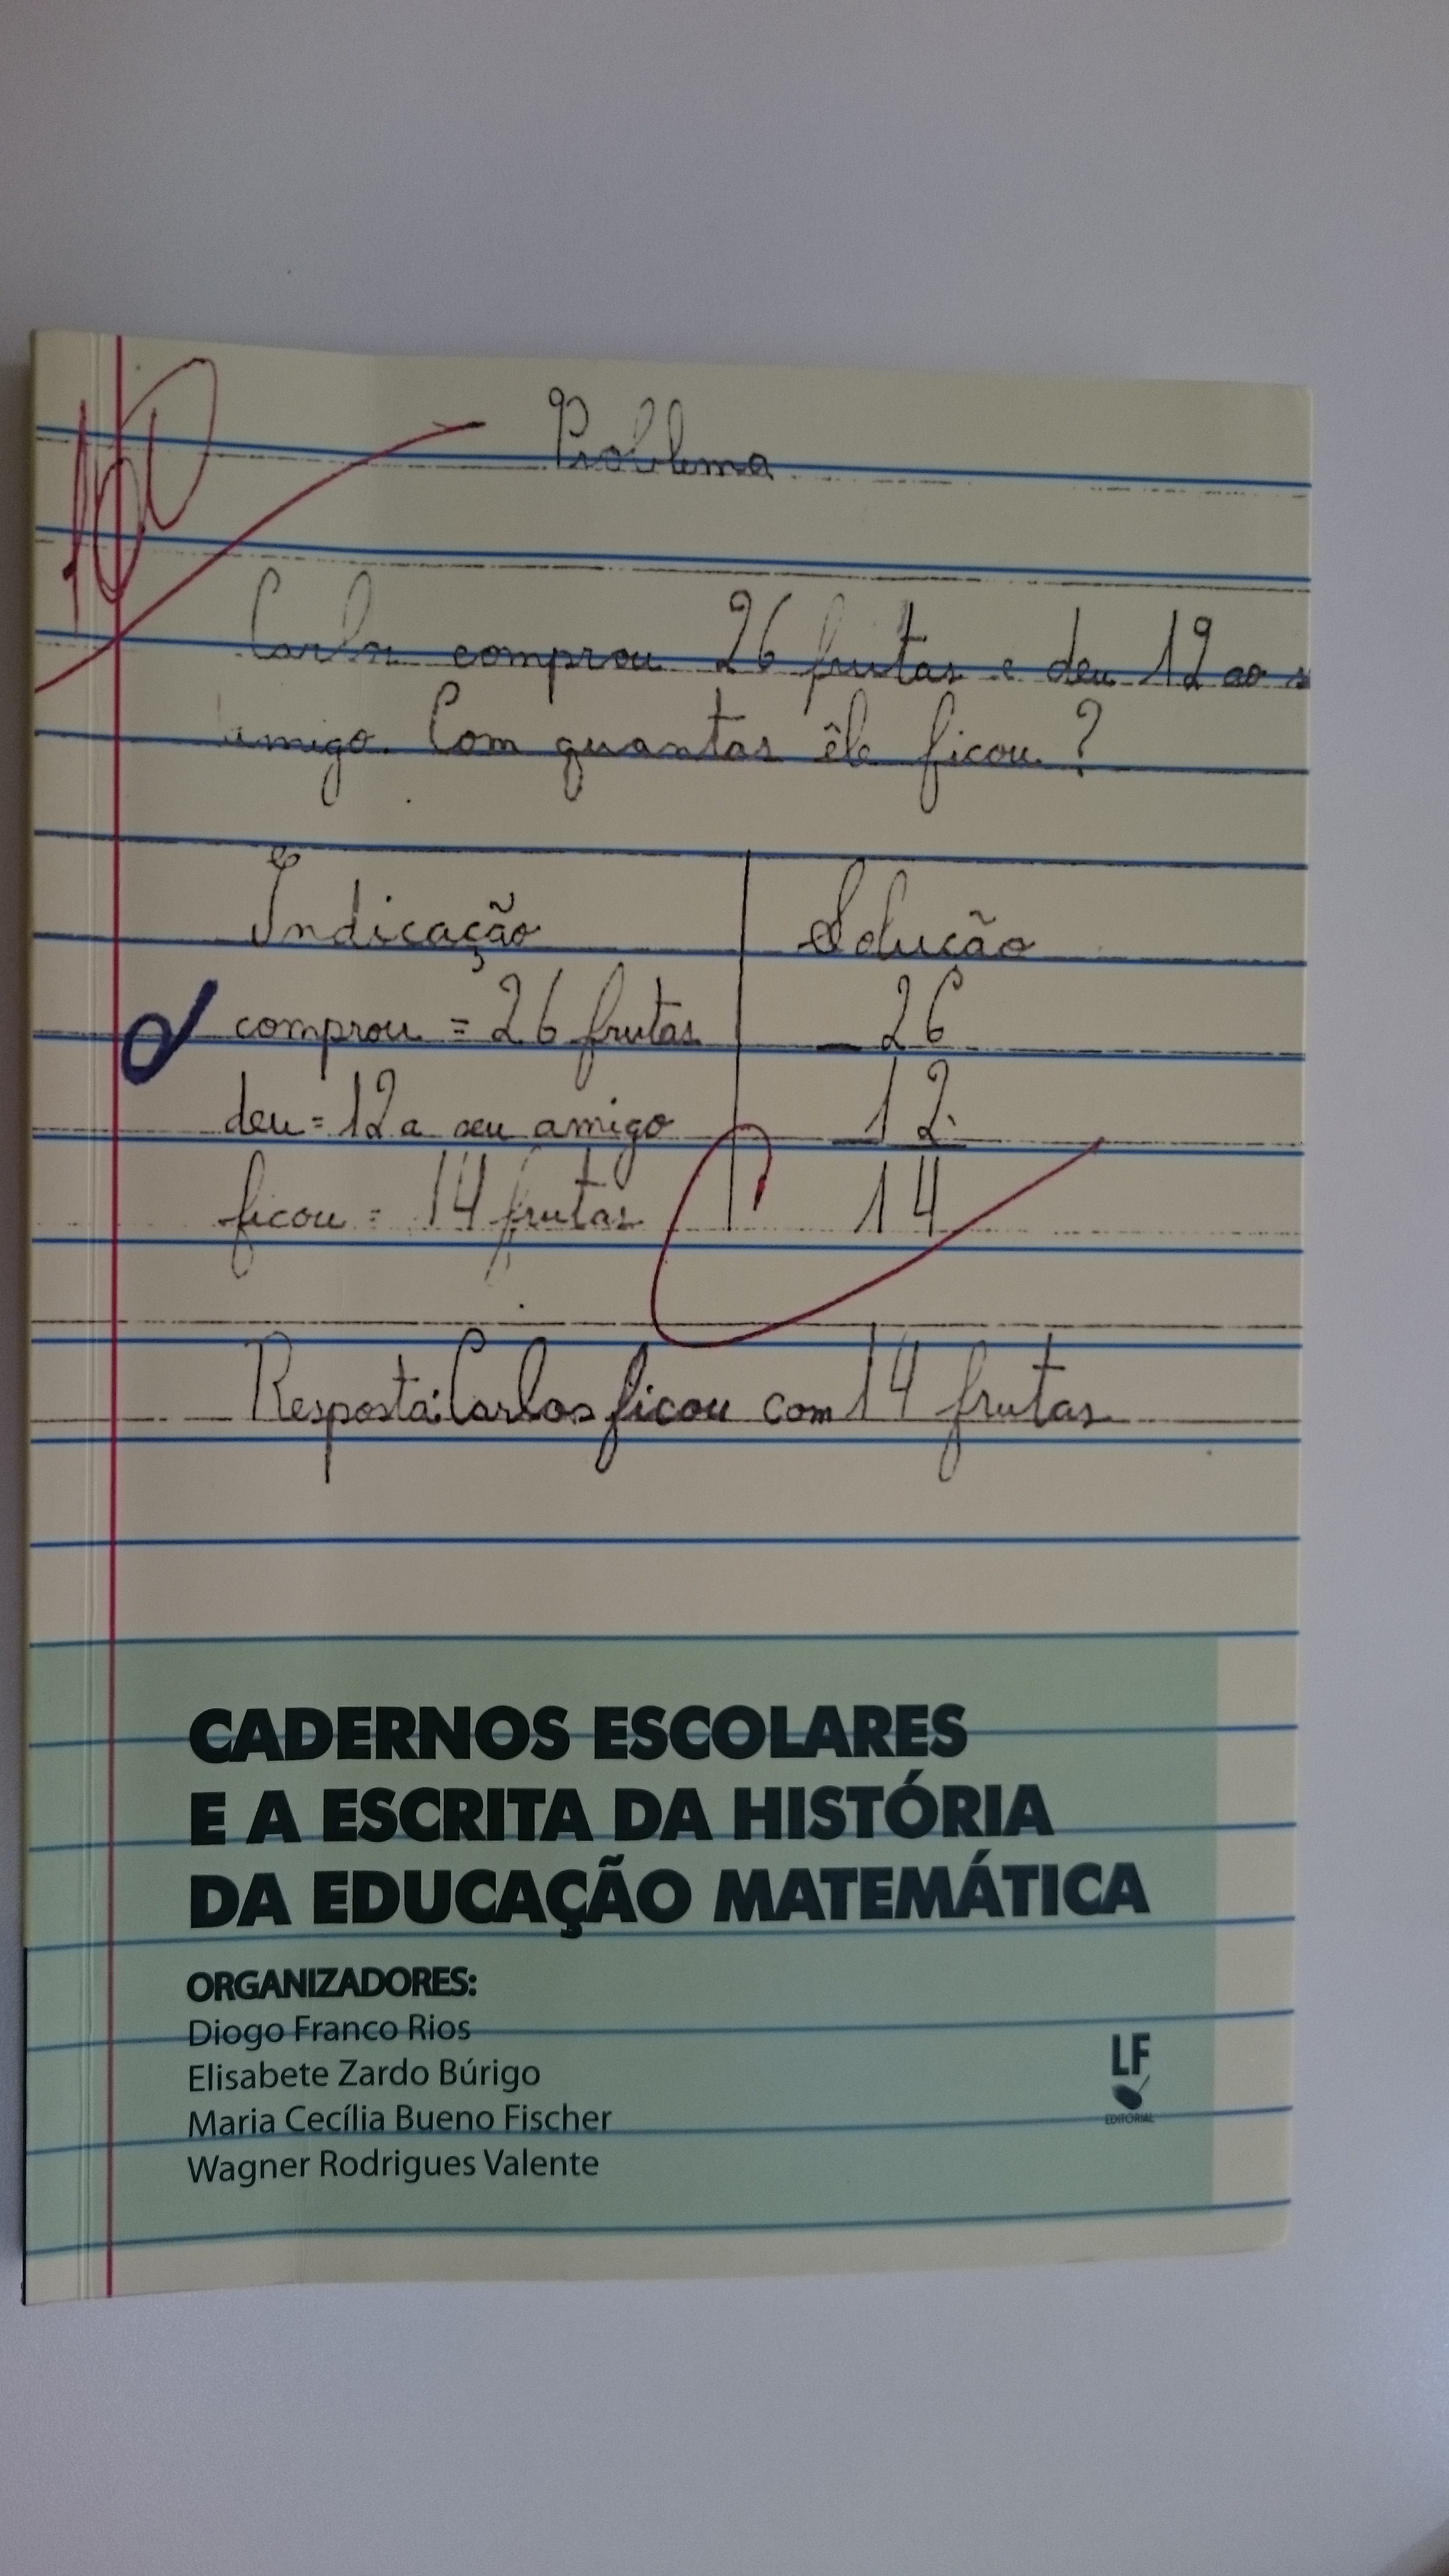 100
Problema
Carlos comprou 26 frutas e deu 12 ao s
amigo. Com quantas êle ficou?
Indicação Solução
comprou = 26 frutas _ 26
deu = 12 a seu amigo 12
ficou = 14 frutas 14
Resposta: Carlos ficou com 14 frutas
CADERNOS ESCOLARES
E A ESCRITA DA HISTÓRIA
DA EDUCAÇÃO MATEMÁTICA
ORGANIZADORES:
Diogo Franco Rios
Elisabete Zardo Búrigo
Maria Cecília Bueno Fischer
Wagner Rodrigues Valente
LF
EDITORIAL